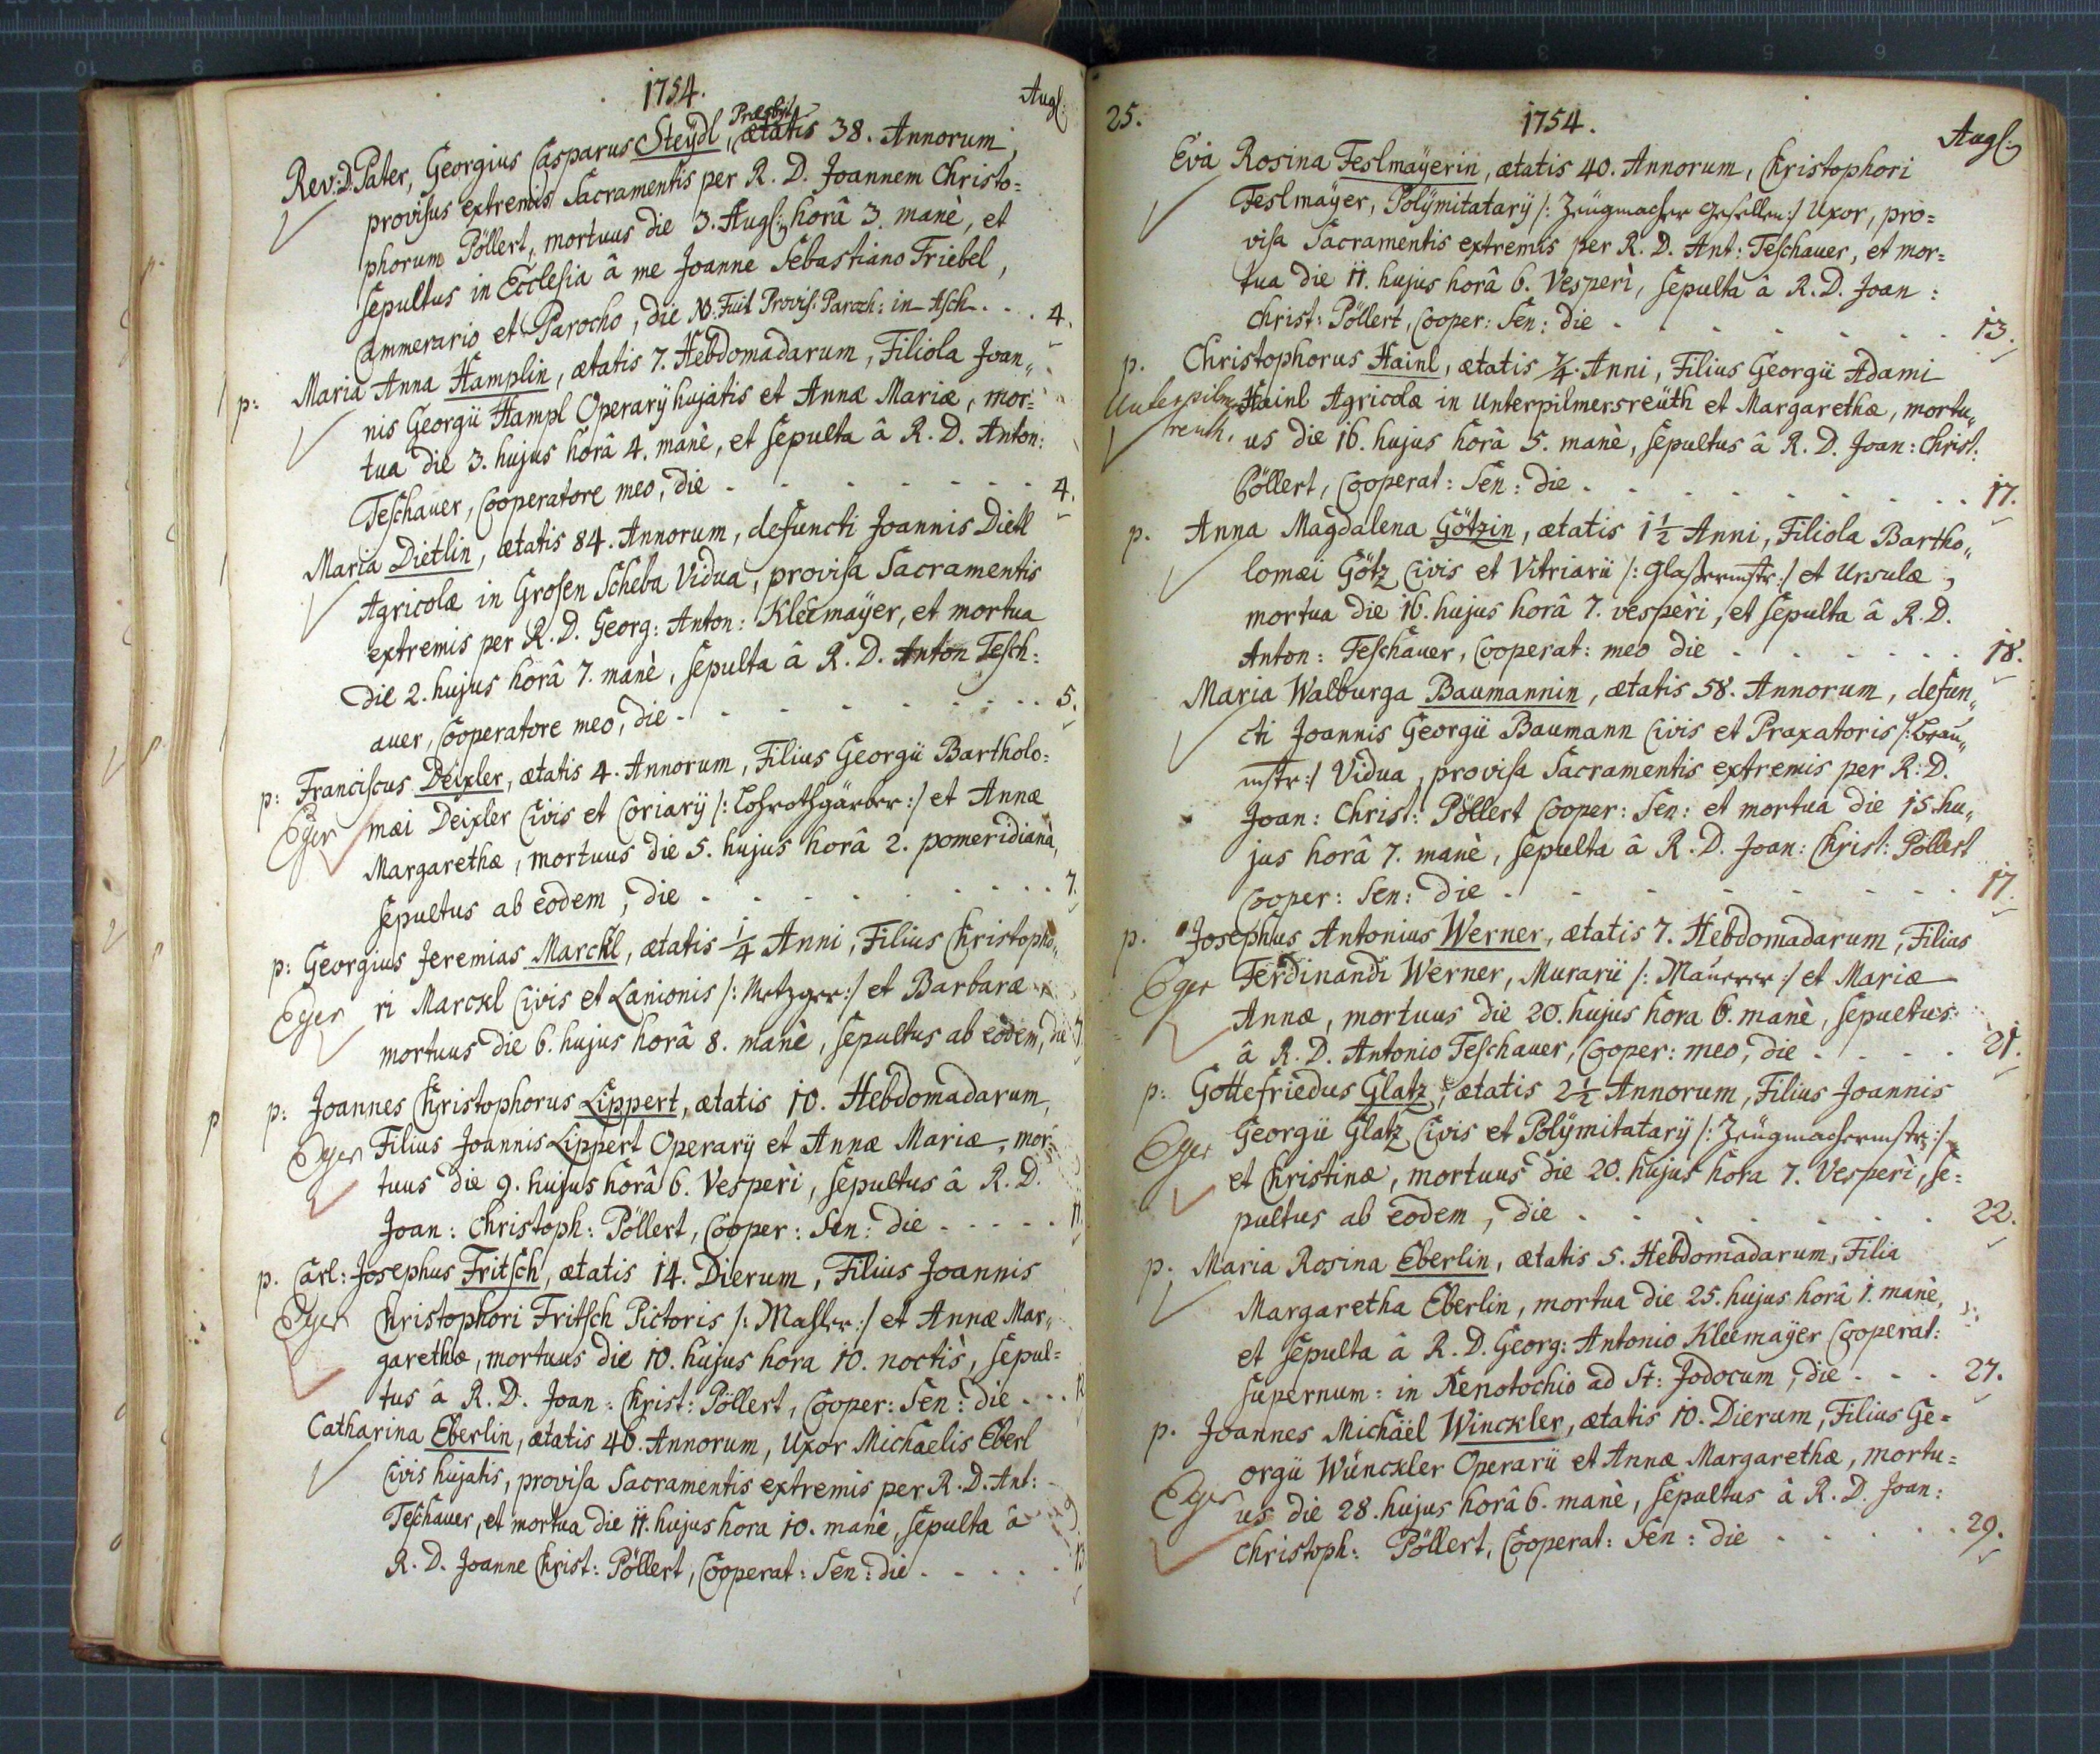 1754.
Augl:
Presbyt.
Rev: D. Pater, Georgius Casparus Steÿdl, ætatis 38. Annorum,
provisus extremis Sacramentis per R. D. Joannem Christo=
phorum Pöllert, mortuus die 3. Augl: horâ 3. manè, et
sepultus in Ecclesia â me Joanne Sebastiano Triebel,
Cammerario et Parocho, die NB. Fuit Provis: Paroch: in Asch . . . 4.
p: Maria Anna Hamplin, ætatis 7. Hebdomadarum, Filiola Joan„
nis Georgii Hampl Operarÿ hujatis et Annæ Mariæ, mor=
tua die 3. hujus horâ 4. manè, et sepulta â R. D. Anton:
Teschauer, Cooperatore meo, die - - - - - - - 4.
Maria Dietlin, ætatis 84. Annorum, defuncti Joannis Dietl
Agricolæ in Grosen Scheba Vidua, provisa Sacramentis
extremis per R. D. Georg: Anton: Kleemaÿer, et mortua
die 2. hujus horâ 7. manè, sepulta â R. D. Anton Tesch:
auer, Cooperatore meo, die - - - - - - - 5.
p: Franciscus Deixler, ætatis 4. Annorum, Filius Georgii Bartholo=
Eger mæi Deixler Civis et Coriarÿ /: Lohrothgärber :/ et Annæ
Margarethæ, mortuus die 5. hujus horâ 2. pomeridianâ,
sepultus ab eodem, die - - - - - - - 7.
p: Georgius Jeremias Marckl, ætatis 1/4 Anni, Filius Christopho„
Eger ri Marckl Civis et Lanionis /: Metzger :/ et Barbaræ
mortuus die 6. hujus horâ 8. manè, sepultus ab eodem, die 7.
p: Joannes Christophorus Lippert, ætatis 10. Hebdomadarum,
Eger Filius Joannis Lippert Operarÿ et Annæ Mariæ, mor=
tuus die 9. hujus horâ 6. Vesperì, sepultus â R. D.
Joan: Christoph: Pöllert, Cooper: Sen: die - - - - - 11.
p. Carl: Josephus Fritsch, ætatis 14. Dierum, Filius Joannis
Eger Christophori Fritsch Pictoris /: Mahler :/ et Annæ Mar„
garethæ, mortuus die 10. hujus hora 10. noctis, sepul=
tus â R. D. Joan: Christ: Pöllert, Cooper: Sen: die - - - 12.
Catharina Eberlin, ætatis 40. Annorum, Uxor Michaelis Eberl
Civis hujatis, provisa Sacramentis extremis per R. D. Ant:
Teschauer, et mortua die 11. hujus hora 10. manè, sepulta â
R. D. Joanne Christ: Pöllert, Cooperat: Sen: die - - - - - 13.
25.
1754.
Augl:
Eva Rosina Teslmaÿerin, ætatis 40. Annorum, Christophori
Teslmaÿer, Polÿmitatarÿ /: Zeügmacher Gesellen :/ Uxor, pro=
visa Sacramentis extremis per R. D. Ant: Teschauer, et mor=
tua die 11. hujus horâ 6. Vesperì, sepulta â R. D. Joan:
Christ: Pöllert, Cooper: Sen: die - - - - - - - 13.
p. Christophorus Hainl, ætatis 7/4. Anni, Filius Georgii Adami
Unterpilmers Hainl Agricolæ in Unterpilmersreüth et Margarethæ, mortu„
reuth. us die 16. hujus horâ 5. manè, sepultus â R. D. Joan: Christ:
Pöllert, Cooperat: Sen: die - - - - - - - 17.
p. Anna Magdalena Götzin, ætatis 1 1/2 Anni, Filiola Bartho„
lomæi Götz Civis et Vitriarii /: Glasermstr: :/ et Ursulæ,
mortua die 16. hujus horâ 7. vesperi, et sepulta â R. D.
Anton: Teschauer, Cooperat: meo die - - - - - - 18.
Maria Walburga Baumannin, ætatis 58. Annorum, defun„
cti Joannis Georgii Baumann Civis et Praxatoris /: Brau„
mstr :/ Vidua, provisa Sacramentis extremis per R. D.
Joan: Christ: Pöllert Cooper: Sen: et mortua die 15. hu„
jus horâ 7. manè, sepulta â R. D. Joan: Christ: Pöllert
Cooper: Sen: die - - - - - - - 17.
p. Josephus Antonius Werner, ætatis 7. Hebdomadarum, Filius
Eger Ferdinandi Werner, Murarii /: Maurer :/ et Mariæ
Annæ, mortuus die 20. hujus hora 6. manè, sepultus
â R. D. Antonio Teschauer, Cooper: meo, die - - - - 21.
p: Gottefriedus Glatz, ætatis 2 1/2 Annorum, Filius Joannis
Eger Georgii Glatz Civis et Polÿmitatarÿ /: Zeügmachermstr: :/
et Christinæ, mortuus die 20. hujus hora 7. Vesperì, se=
pultus ab eodem, die - - - - - - - 22.
p. Maria Rosina Eberlin, ætatis 5. Hebdomadarum, Filia
Margaretha Eberlin, mortua die 25. hujus horâ 1. manè,
et sepulta â R. D. Georg: Antonio Kleemaÿer Cooperat:
supernum: in Xenotochio ad St: Jodocum, die - - - 27.
p. Joannes Michaël Winckler, ætatis 10. Dierum, Filius Ge=
orgii Wünckler Operarii et Annæ Margarethæ, mortu=
Eger us die 28. hujus horâ 6. manè, sepultus â R. D. Joan:
Christoph: Pöllert, Cooperat: Sen: die - - - - - 29.